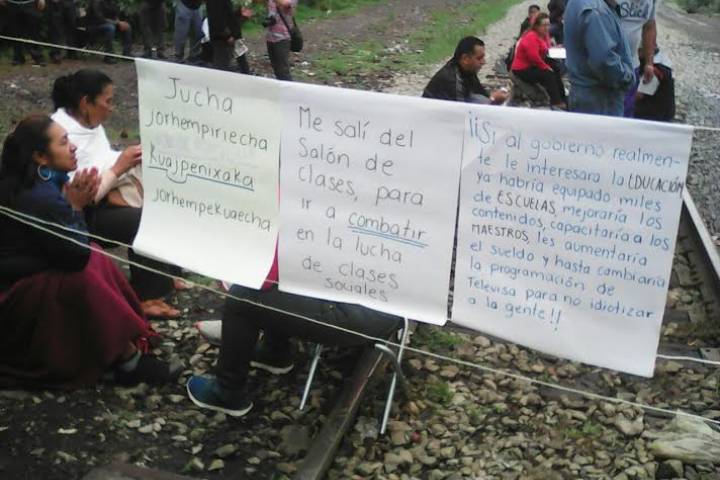 Jucha
Jorhempiriecha
Kuajpenixaka
Jorhempekuaecha
Me salí del
Salón de
clases, para
ir a combatir
en la lucha
de clases
sociales
¡¡Si al gobierno realmen-
te le interesara la EDUCACIÓN
ya habría equipado miles
de ESCUELAS, mejoraría los
contenidos, capacitaría a los
MAESTROS, les aumentaría
el sueldo y hasta cambiaría
la programación de
Televisa para no idiotizar
a la gente!!